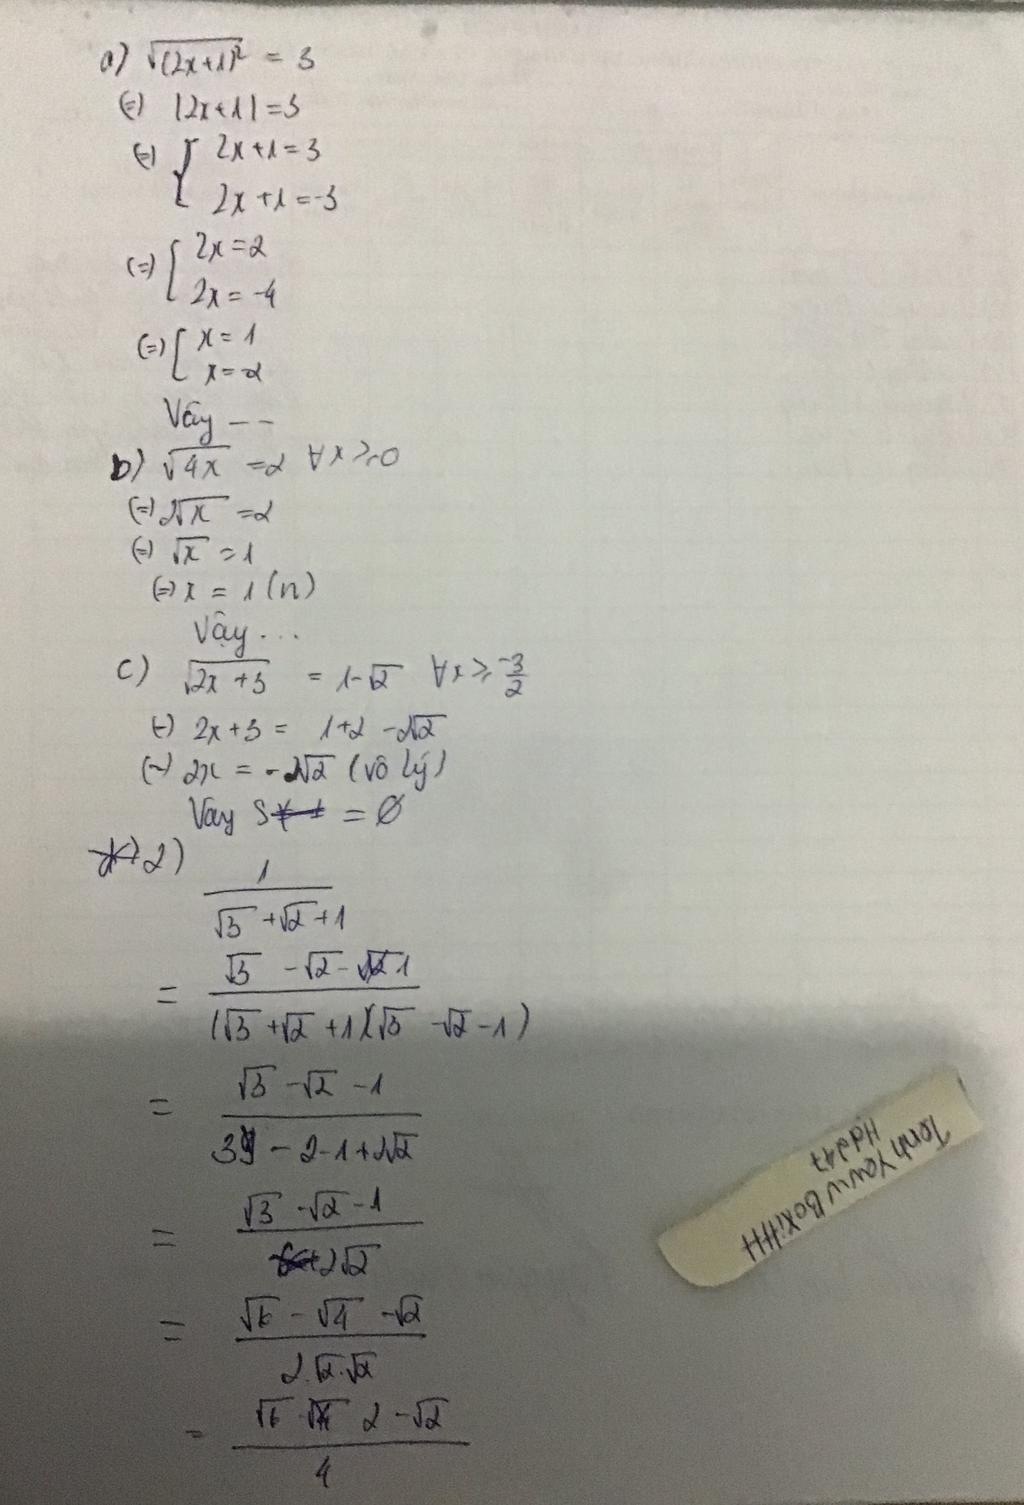 a) √(2x+1)² = 3
(=) |2x+1| = 3
(=) { 2x+1 = 3
2x+1 = -3
(=) [ 2x = 2
2x = -4
(=) [ x = 1
x = -2
Vậy --
b) √4x = 2 ∀x ≥ 0
(=) 2√x = 2
(=) √x = 1
(=) x = 1 (n)
Vậy ...
c) √2x+3 = 1-√2 ∀x ≥ -3/2
(=) 2x+3 = 1+2-2√2
(=) 2x = -2√2 (vô lý)
Vậy S = ∅
2)
1
√3+√2+1
= √3 -√2-1
(√3+√2+1)(√3-√2-1)
= √3-√2-1
3-2-1+2√2
= √3-√2-1
2√2
= √6-√4-√2
2.√2.√2
= √6 2-√2
4
Hdd47